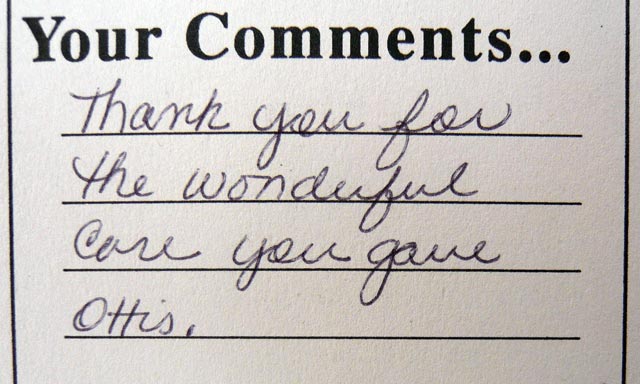 Your Comments...
Thank you for
the wonderful
Care you gave
Ottis.